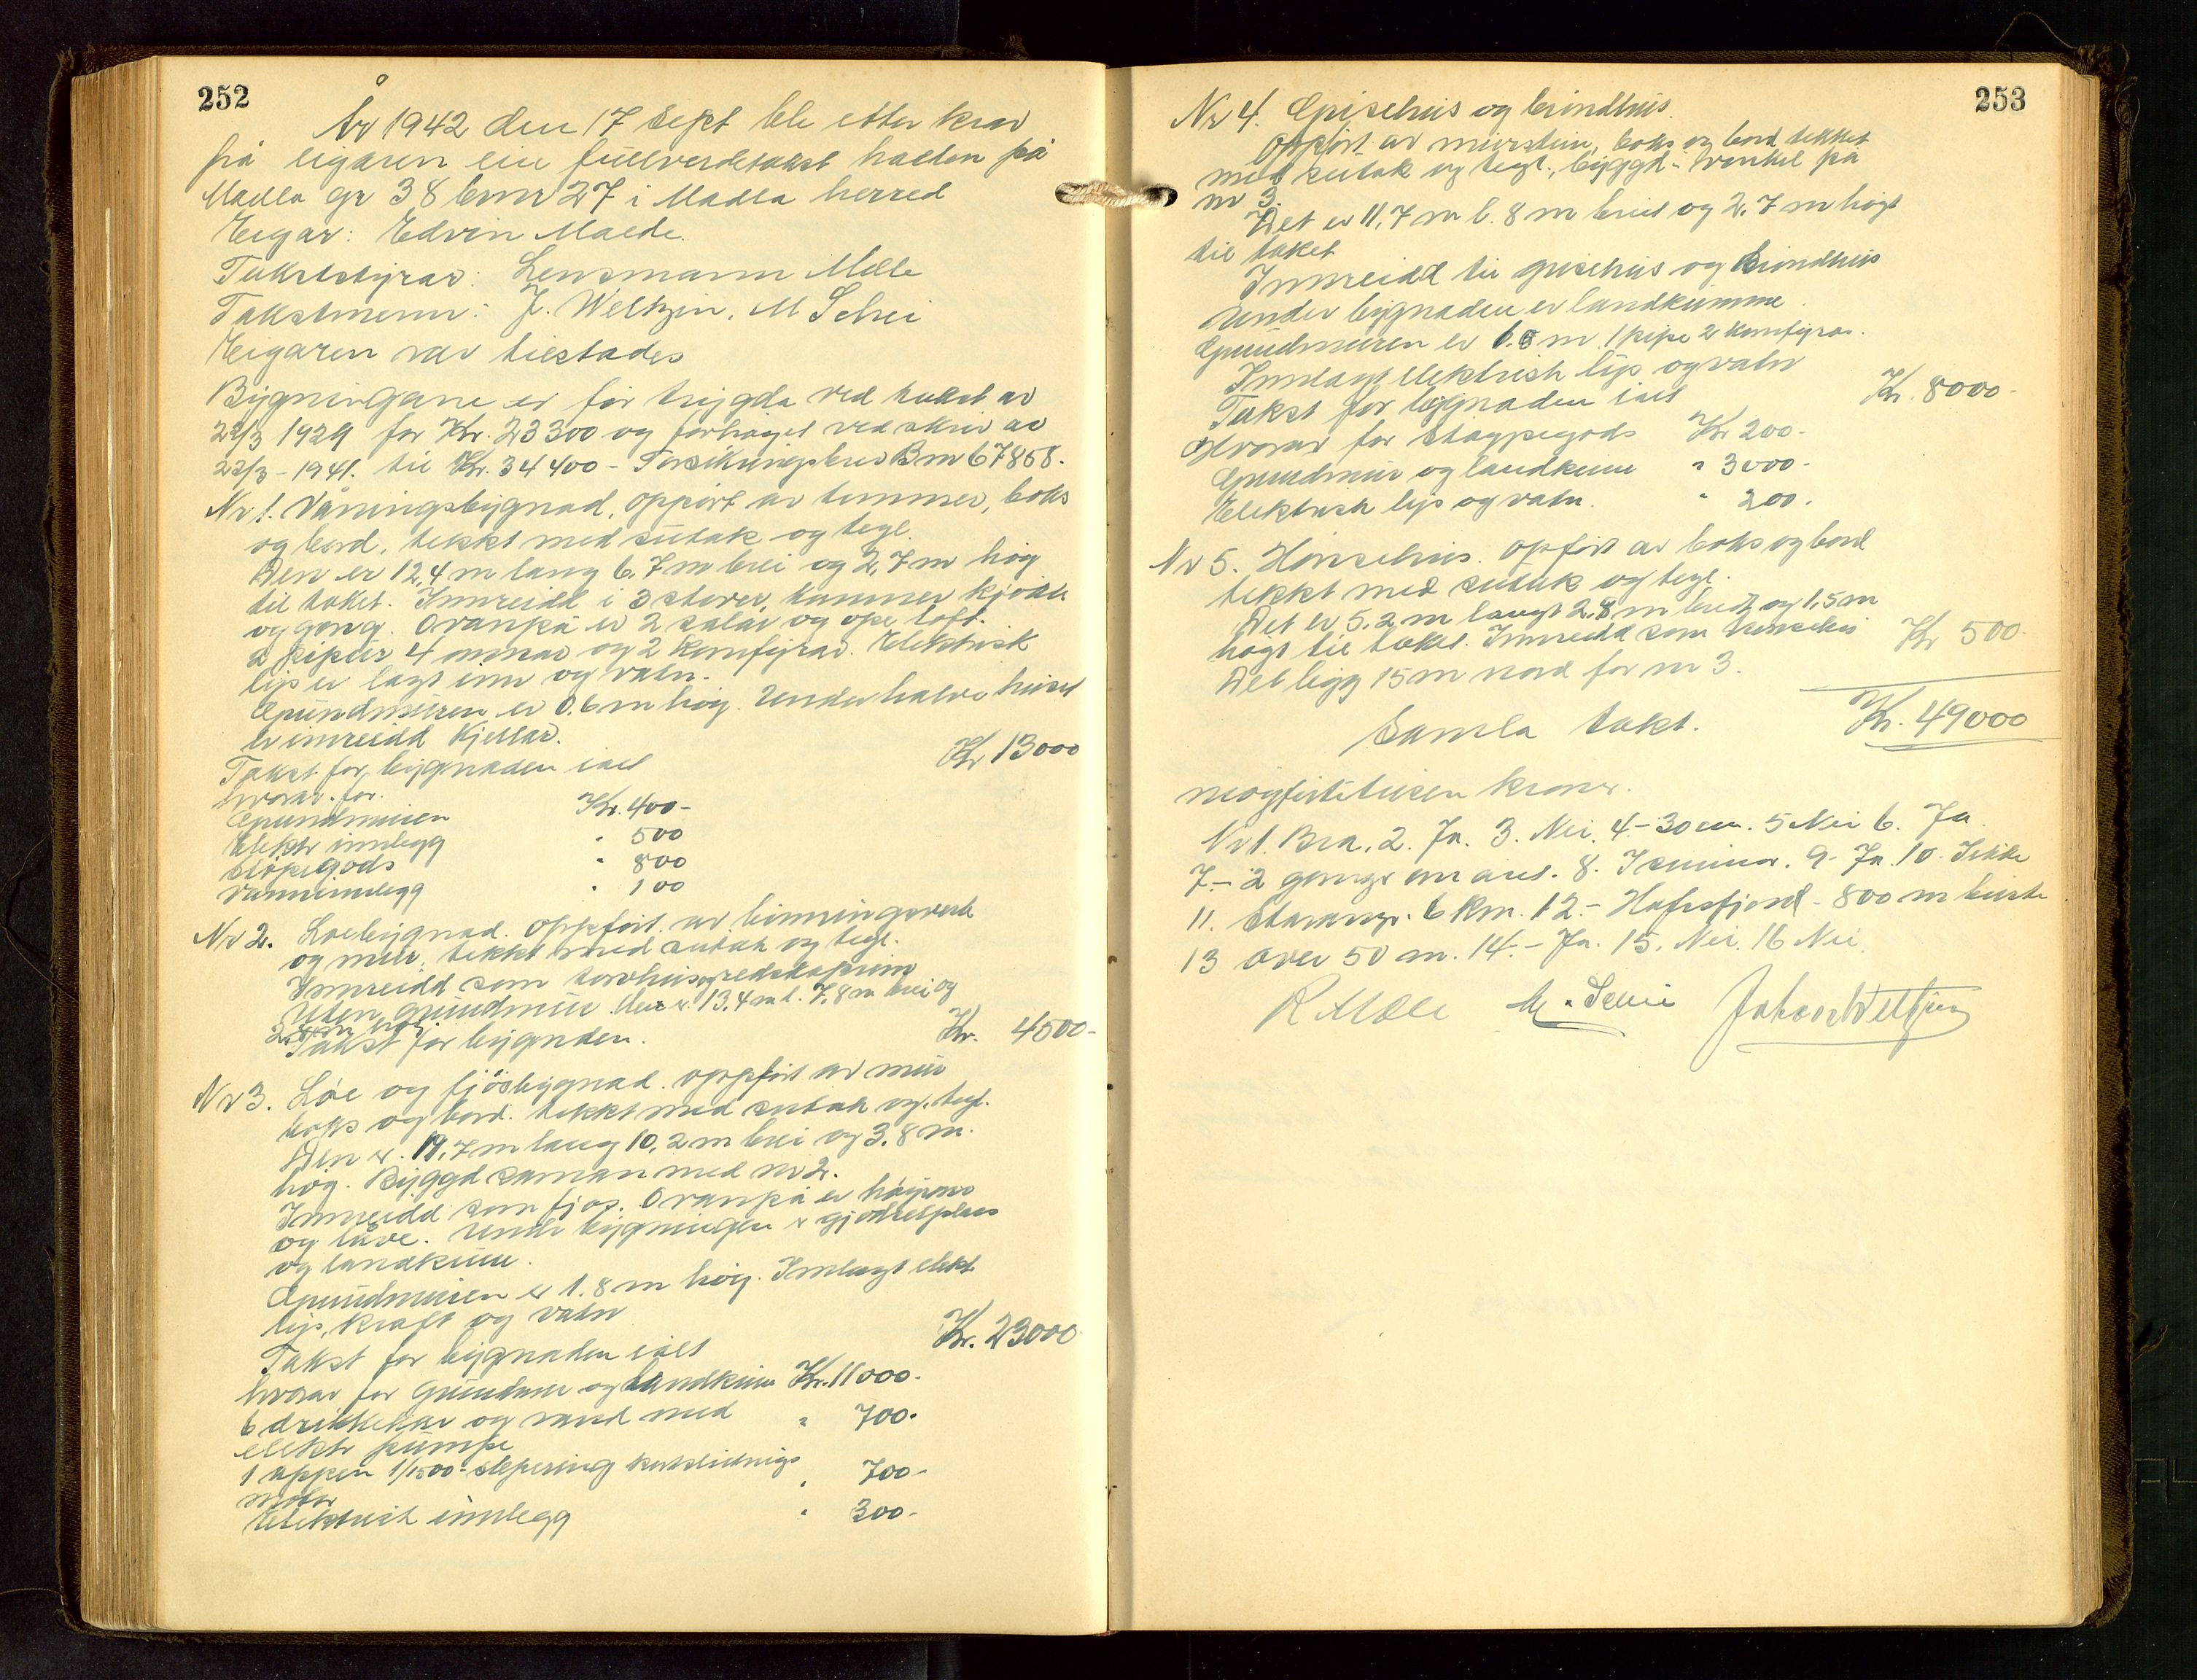 252
År 1942 den 17 Sept ble etter krav
frå eigaren ein fullverdetakst halden på
Madla gr 38 bnr 27 i Madla herred
Eigar: Edvin Malde.
Takststyrar: Lensmann Melle
Takstmenn: J. Weltzin, M Schei
Eigaren var tilstades
Bygningane er før trygda ved takst av
22/3 1929 for Kr. 23300 og forhøget ved skriv av
22/3-1941. til Kr. 34400 - Forsikringsbrev B nr 67858.
Nr 1. Våningsbygnad, oppført av tømmer, boks
og bord, tekkt med sutak og tegl.
Den er 12,4 m lang 6,7 m brei og 2,7 m høg
til taket. Innreidd i 3 stover, kammer kjøken
og gong. Ovanpå er 2 salar og ope loft.
2 piper 4 omnar og 2 komfyrar. Elektrisk
lys er lagt inn og vatn.
Grundmuren er 0.6 m høg. Under halve huset
er innreidd Kjellar.
Takst for bygnaden ialt Kr 13000
hvorav for.
Grundmuren Kr. 400-
Elektr innlegg " 500
Støpegods " 800
Vanninnlegg " 100
Nr 2. Løebygnad. Oppført av binningsverk
og mur, tekkt med sutak og tegl.
Innreidd som torvhus og redskapsrom
Uten grundmur. Den er 13,4 m l. 7,8 m brei og
2. m høg.
Takst for bygnden. Kr. 4500-
Nr 3. Løe og fjøsbygnad. oppført av mur
boks og bord. tekkt med sutak og tegl.
Den er. 19,7 m lang 10,2 m brei og 3.8 m.
høg. Byggd saman med nr 2.
Innreidd som fjøs. Ovanpå er høyrom
og låve. Under bygningen er gjødselplass
og landkum.
Grundmuren er 1.8 m høg. Innlagt elekt
lys, kraft og vatn
Takst for bygnaden ialt Kr. 23000
hvorav for Grundmur og landkum Kr. 11000.
6 drikkekar og vand med " 700.
elektr pumpe
1 1/1500 " 700-
motor
Elektrisk innlegg " 300-
253
Nr 4. Grisehus og brendhus.
Oppført av murstein, boks og bord, tekket
med sutak og tegl., byggd i vinkel på
nr 3.
Det er 11,7 m l. 8 m breit og 2,7 m høgt
til taket
Innreidd til grisehus og brendhus
Under bygnaden er landkumme.
Grundmuren er 1.8 m. 1 pipe 2 komfyrar.
Innlagt elektrisk lys og vatn
Takst for bygnaden ialt Kr. 8000-
Hvorav for støypegods Kr 200-
Grundmur og landkum " 3000-
Elektrisk lys og vatn. " 200.
Nr 5. Hønsehus. oppført av boks og bord
tekkt med sutak og tegl.
Det er 5.2 m langt 2,8 m breidt og 1,5 m
høgt til taket. Innreidd som hønsehus Kr 500-
Det ligg 15 m nord for nr 3.
Samla takst. Kr. 49000
kroner.
Nr 1. Bra. 2. Ja. 3. Nei. 4.- 30 cm. 5 Nei 6. Ja.
7.- 2 gonger om året. 8. I 9- Ja. 10. Ikke
11. Stavanger. 6 Km. 12.- Hafrsfjord - 800 m borte
13 over 50 m. 14.- Ja. 15. Nei. 16 Nei.
R Melle M. Schei Johan Weltzin